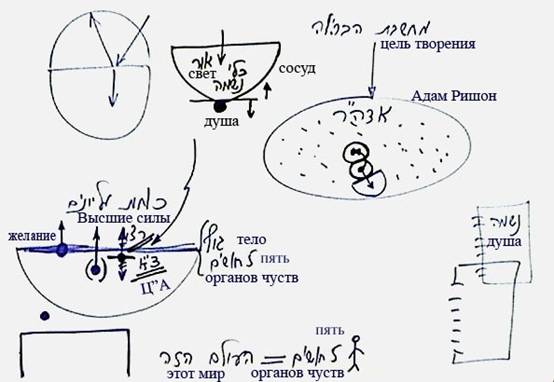 מחשבת הבריאה
цель творения
אור
свет
כלי
נשמה
сосуд
душа
Адам Ришон
אדה"ר
כוחות עליונים
Высшие силы
желание
גוף
тело
5 חושים
пять
органов чувств
Ц"А
נשמה
душа
пять
העולם הזה = 5 חושים
этот мир
органов чувств